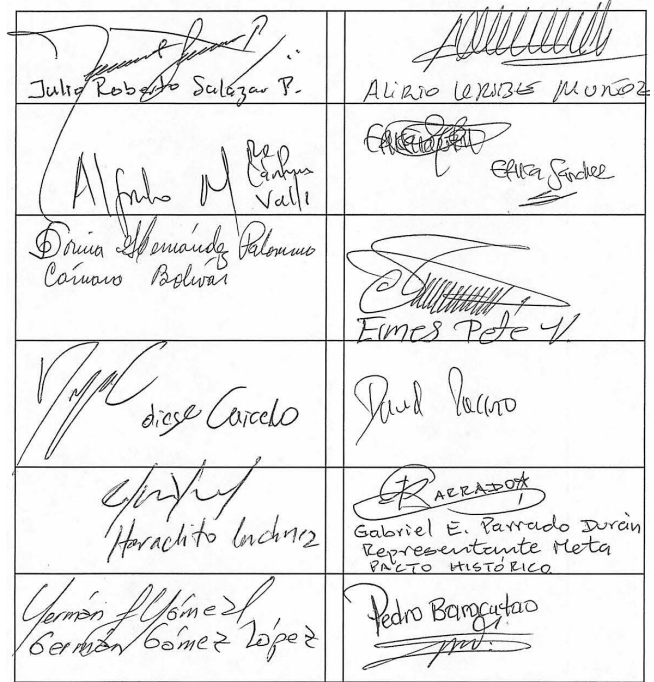 Julio Roberto Salazar P.
ALIRIO URIBE MUÑOZ
Alfredo M
Rep
Cámara
Valle
Erika Sánchez
Dorina Hernández Palomino
Cámara Bolívar
Ermes Pete V.
diego Caicedo
David Racero
Heraclito Landinez
PARRADO
Gabriel E. Parrado Durán
Representante Meta
PACTO HISTÓRICO
Germán Gómez
Germán Gómez López
Pedro Baracutao